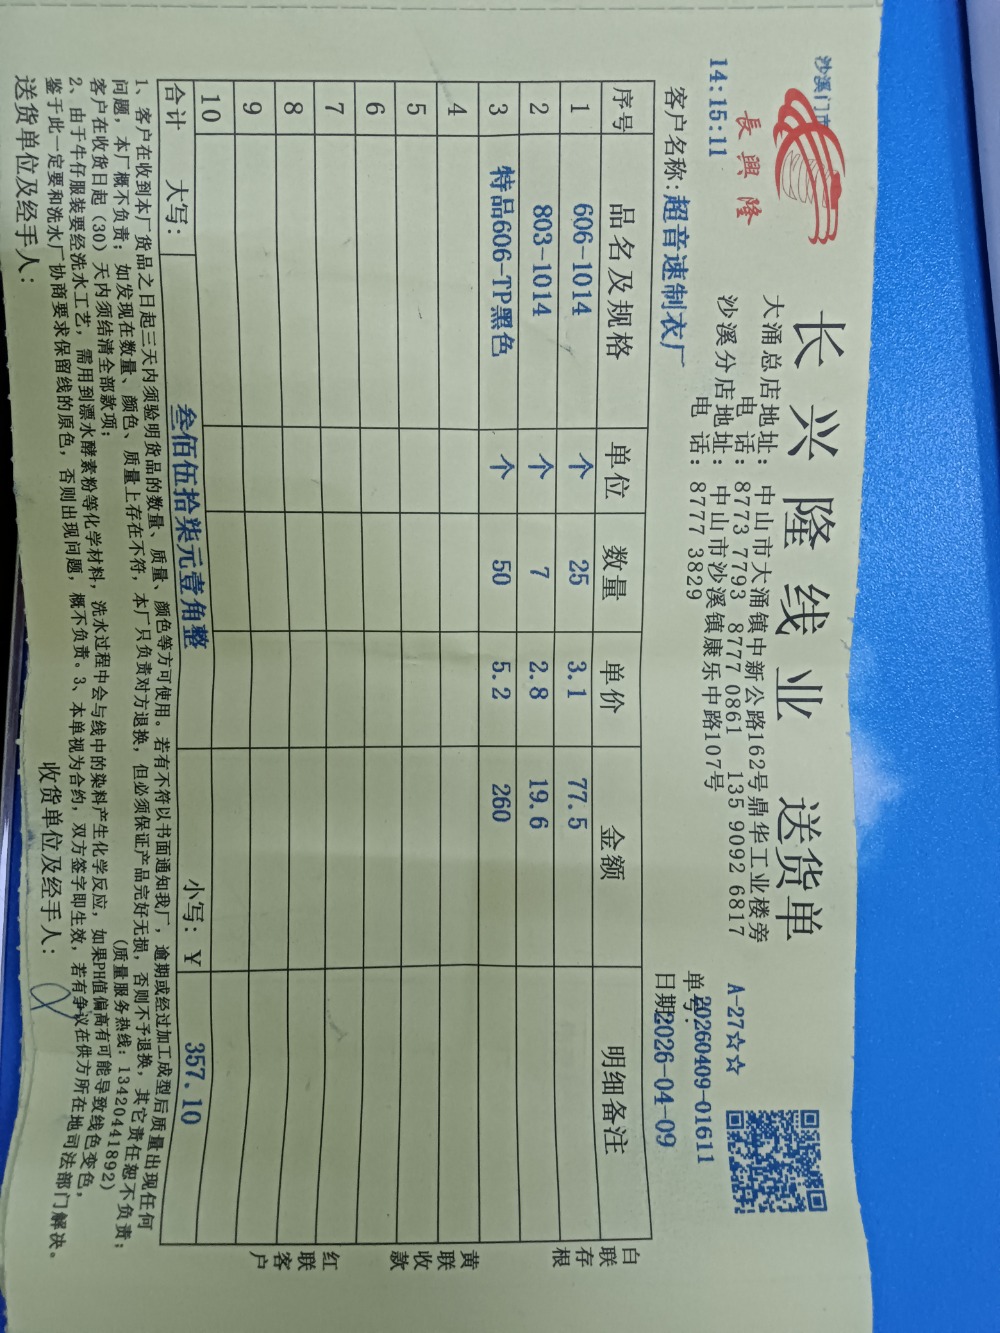 沙溪门
長興隆
长兴隆线业 送货单
大涌总店地址：中山市大涌镇中新公路162号鼎华工业楼旁
电 话：8773 7793 8777 0861 135 9092 6817
沙溪分店地址：中山市沙溪镇康乐中路107号
电 话：8777 3829
14:15:11
A-27☆☆
单号：20260409-01611
客户名称：超音速制衣厂
日期2026-04-09
序号 品名及规格 单位 数量 单价 金额 明细备注
1 606-1014 个 25 3.1 77.5
2 803-1014 个 7 2.8 19.6
3 特品606-TP黑色 个 50 5.2 260
4
5
6
7
8
9
10
合计 大写： 叁佰伍拾柒元壹角整 小写：￥ 357.10
白联存根
黄联收款
红联客户
1、客户在收到本厂货品之日起三天内须验明货品的数量、质量、颜色等方可使用。若有不符以书面通知我厂，逾期或经过加工成型后质量出现任何
问题，本厂概不负责，如发现在数量、颜色、质量上存在不符，本厂只负责对方退换，但必须保证产品完好无损，否则不予退换，其它责任恕不负责；
客户在收货日起（30）天内须结清全部款项；（质量服务热线：13420441892）
2、由于牛仔服装要经洗水工艺，需用到漂水酵素粉等化学材料，洗水过程中会与线中的染料产生化学反应，如果PH值偏高有可能导致线色变色，
鉴于此一定要和洗水厂协商要求保留线的原色，否则出现问题，概不负责。3、本单视为合约，双方签字即生效，若有争议在供方所在地司法部门解决。
送货单位及经手人： 收货单位及经手人：